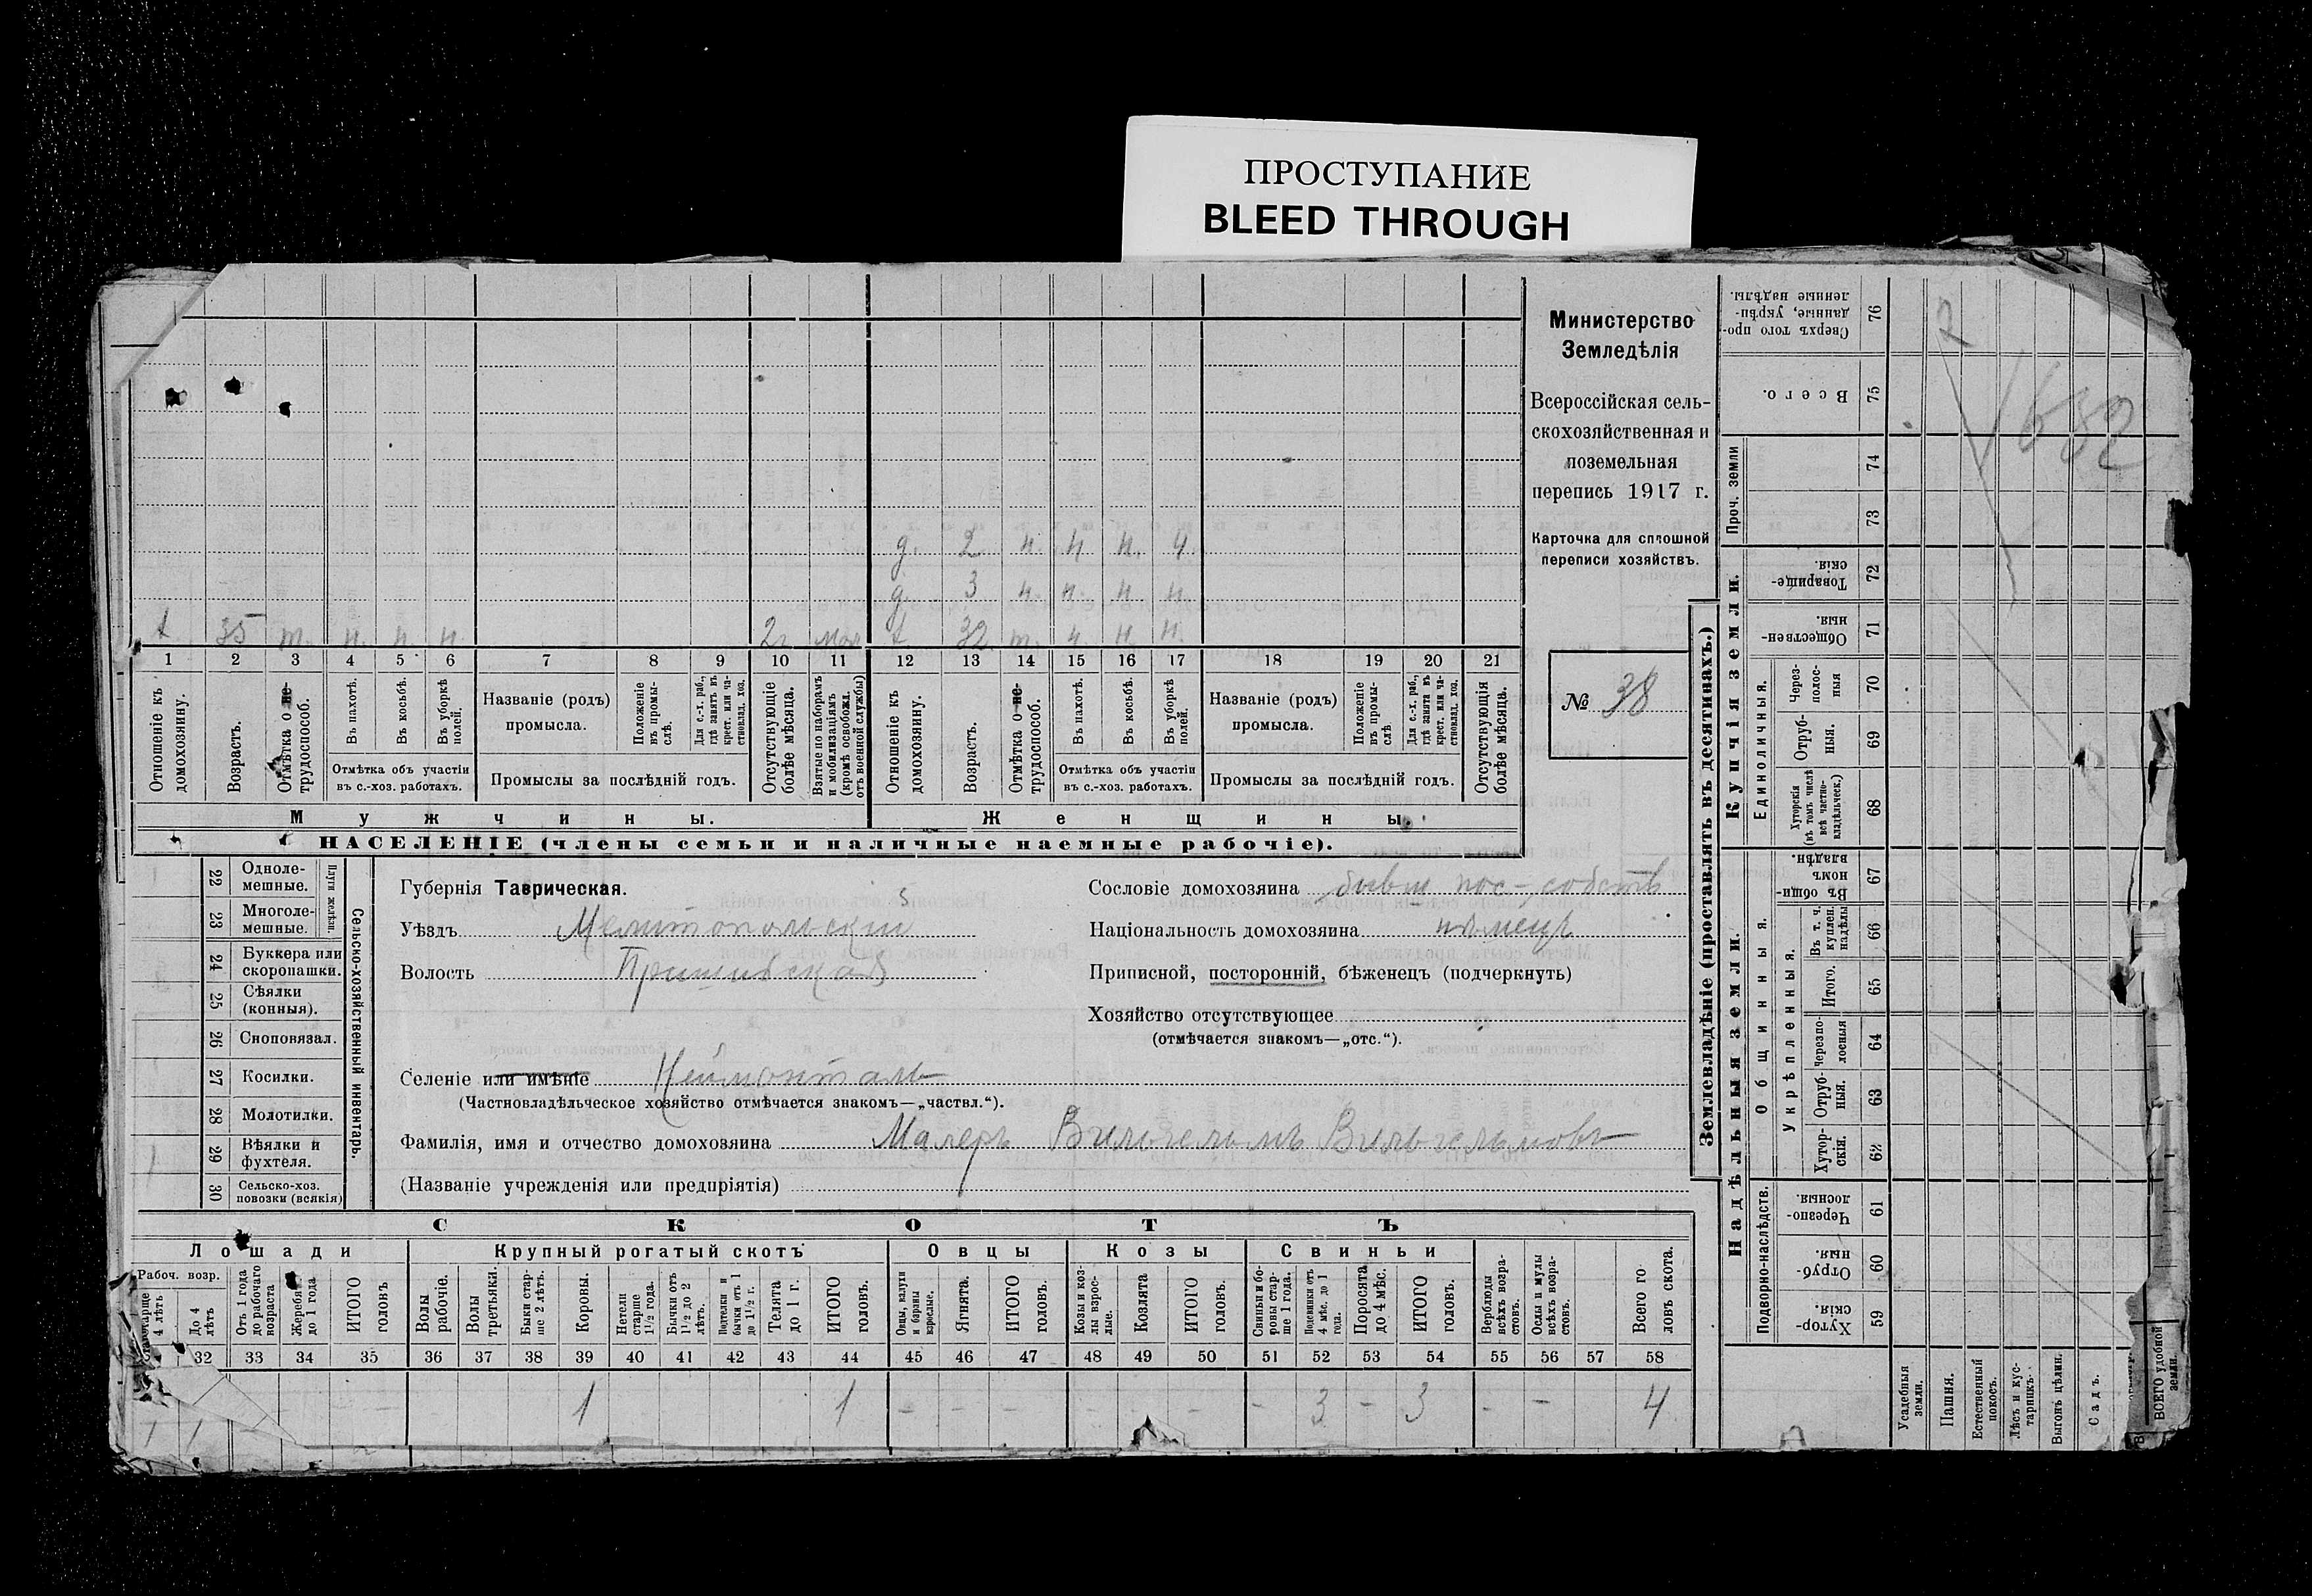 ПРОСТУПАНИЕ
BLEED THROUGH
Министерство
Земледѣлія
Всероссійская сель-
скохозяйственная и
поземельная
перепись 1917 г.
Карточка для сплошной
переписи хозяйствъ.
№ 38
д. 2 н. н. н. н.
д. 3 н. н. н. н.
35 т. н. н. н. 2 г. 32 т. н. н. н.
1 2 3 4 5 6 7 8 9 10 11 12 13 14 15 16 17 18 19 20 21
Отношеніе къ домохозяину.
Возрастъ.
Отмѣтка о не-трудоспособ.
Въ пахотѣ.
Въ косьбѣ.
Въ уборкѣ полей.
Отмѣтка объ участіи въ с.-хоз. работахъ.
Названіе (родъ) промысла.
Положеніе въ промыслѣ.
Для с.-х. раб., гдѣ занятъ въ крест. или частновлад. хоз.
Промыслы за послѣдній годъ.
Отсутствующіе болѣе мѣсяца.
Взятые по наборамъ и мобилизаціямъ (кромѣ освобожд. отъ военной службы)
Отношеніе къ домохозяину.
Возрастъ.
Отмѣтка о не-трудоспособ.
Въ пахотѣ.
Въ косьбѣ.
Въ уборкѣ полей.
Отмѣтка объ участіи въ с.-хоз. работахъ.
Названіе (родъ) промысла.
Положеніе въ промыслѣ
Для с.-х. раб., гдѣ занята въ крест. или частновлад. хоз.
Промыслы за послѣдній годъ.
Отсутствующія болѣе мѣсяца.
Мужчины. Женщины.
НАСЕЛЕНІЕ (члены семьи и наличные наемные рабочіе).
22 Однолемешные.
23 Многолемешные.
Плуги желѣзн.
24 Буккера или скоропашки.
25 Сѣялки (конныя).
26 Сноповязал.
27 Косилки.
28 Молотилки.
1 29 Вѣялки и фухтеля.
30 Сельско-хоз. повозки (всякія)
Сельско-хозяйственный инвентарь.
Губернія Таврическая.
Уѣздъ Мелитопольскій 5
Волость Пришибская
Сословіе домохозяина бывш пос-собств
Національность домохозяина нѣмецъ
Приписной, посторонній, бѣженецъ (подчеркнуть)
Хозяйство отсутствующее
(отмѣчается знакомъ—„отс.“).
Селеніе или имѣніе Неймонталь
(Частновладѣльческое хозяйство отмѣчается знакомъ—„частвл.“).
Фамилія, имя и отчество домохозяина Малеръ Вильгельмъ Вильгельмовъ
(Названіе учрежденія или предпріятія)
СКОТЪ
Лошади Крупный рогатый скотъ Овцы Козы Свиньи
Рабоч. возр.
старше 4 лѣтъ
До 4 лѣтъ
Отъ 1 года до рабочаго возраста
Жеребята до 1 года
ИТОГО головъ
Волы рабочіе.
Волы третьяки.
Быки старше 2 лѣтъ.
Коровы.
Нетели старше 1½ года.
Бычки отъ 1½ до 2 лѣтъ.
Подтелки и бычки отъ 1 до 1½ г.
Телята до 1 г.
ИТОГО головъ.
Овцы, валухи и бараны взрослые.
Ягнята.
ИТОГО головъ.
Козы и козлы взрослые.
Козлята
ИТОГО головъ.
Свиньи и боровы старше 1 года.
Подсвинки отъ 4 мѣс. до 1 года.
Поросята до 4 мѣс.
ИТОГО головъ.
Верблюды всѣхъ возрастовъ.
Ослы и мулы всѣхъ возрастовъ.
Всего головъ скота.
32 33 34 35 36 37 38 39 40 41 42 43 44 45 46 47 48 49 50 51 52 53 54 55 56 57 58
1 1 - - - 1 1 - - - - - - - 3 - 3 - - 4
Землевладѣніе (проставлять въ десятинахъ.)
Надѣльныя земли. Купчія земли.
Проч. земли
Подворно-наслѣдств.
Общинныя.
Укрѣпленныя.
Единоличныя.
76 Сверхъ того проданные, укрѣпленные надѣлы.
75 Всего.
74
73
72 Товарищескія.
71 Общественныя.
70 Черезполосныя
69 Отрубныя.
68 Хуторскія (въ томъ числѣ всѣ частновладѣльческ.)
67 Въ общинномъ владѣн.
66 Въ т. ч. куплен. надѣлы
65 Итого.
64 Черезполосныя
63 Отрубныя.
62 Хуторскія.
61 Черезполосныя
60 Отрубныя.
59 Хуторскія
Усадебныя земли.
Пашня.
Естественный покосъ.
Лѣсъ и кустарникъ.
Выгонъ цѣлин.
Садъ.
ВСЕГО удобной земли.
2
1632